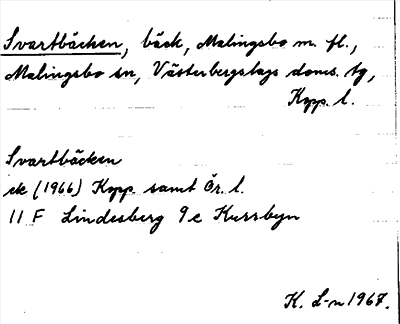 Svartbäcken, bäck, Malingsbo m. fl.,
Malingsbo sn, Västerbergslags doms. tg,
Kopp. l.
Svartbäcken
ek (1966) Kopp. samt Ör. l.
11 F Lindesberg 9 c Kursbyn
K. L-n 1967.